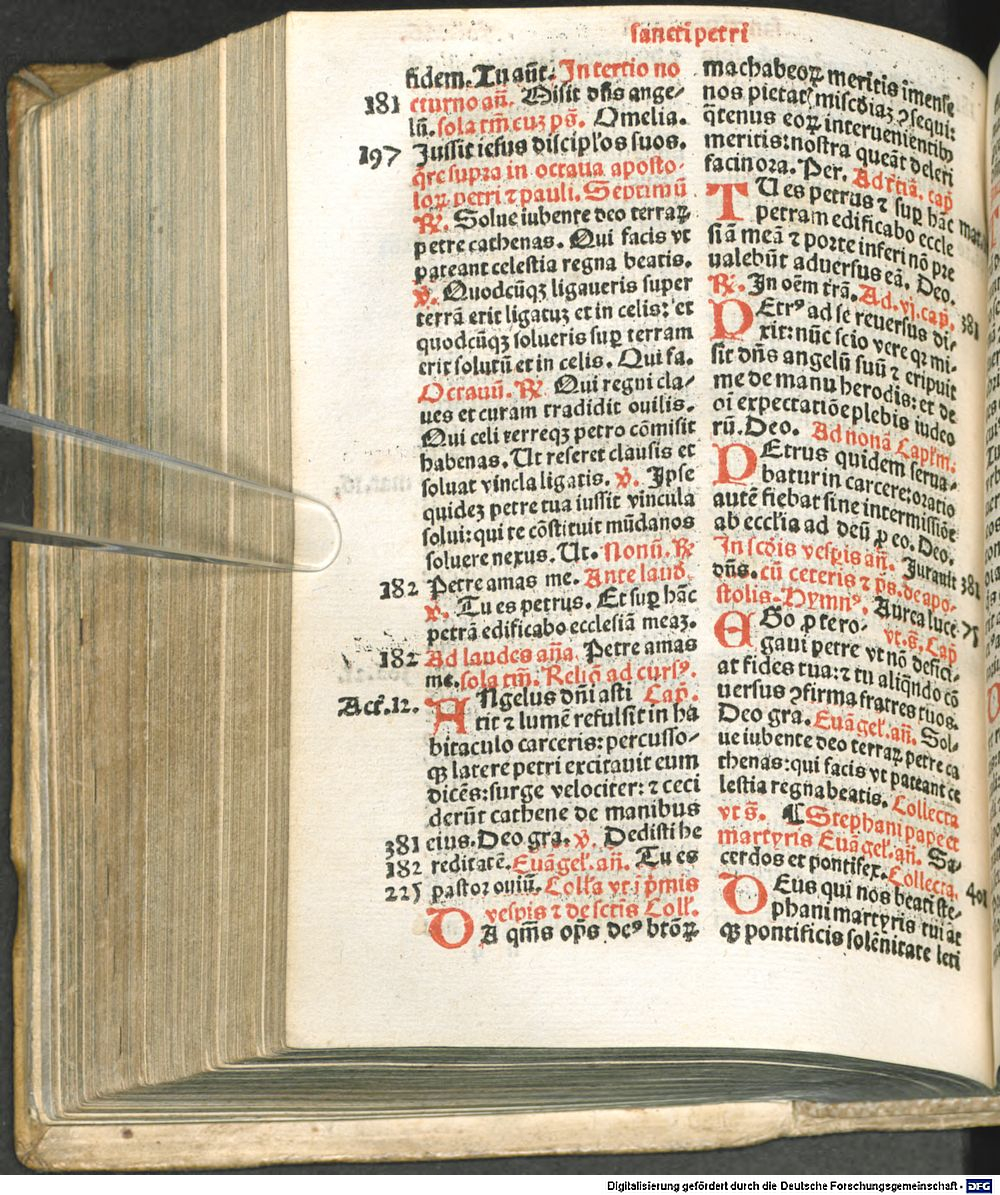 sancti petri
fidem. Tu añt. In tertio no
181 cturno añ. Misit dñs ange⸗
lũ. sola tm̃ cuʒ pš. Omelia.
197 Jussit iesus discipl'os suos.
q̃re supra in octaua aposto⸗
loꝝ petri ⁊ pauli. Septimũ
℟. Solue iubente deo terraꝝ
petre cathenas. Qui facis vt
pateant celestia regna beatis.
℣. Quodcũqʒ ligaueris super
terrã erit ligatuʒ et in celis: et
quodcũqʒ solueris suꝑ terram
erit solutũ et in celis. Qui fa.
Octauũ. ℟. Qui regni cla⸗
ues et curam tradidit ouilis.
Qui celi terreqʒ petro cõmisit
habenas. Ut reseret clausis et
soluat vincla ligatis. ℣. Ipse
quideʒ petre tua iussit vincula
solui: qui te cõstituit mũdanos
soluere nexus. Ut. Nonũ. ℟
182 Petre amas me. Ante laud.
℣. Tu es petrus. Et suꝑ hãc
petrã edificabo ecclesiã meaʒ.
182 Ad laudes aña. Petre amas
me. sola tm̃. Reliq̃ ad curs⁹.
Act. 12. ANgelus dñi asti Cap.
tit ⁊ lumẽ refulsit in ha
bitaculo carceris: percusso⸗
qʒ latere petri excitauit eum
dicẽs: surge velociter: ⁊ ceci
derũt cathene de manibus
381 eius. Deo gra. ℣. Dedisti he
182 reditatẽ. Euãgel'. añ. Tu es
225 pastor ouiũ. Coll'a vt i p̃mis
vesp̃is ⁊ de sctĩs Coll'.
DA q̃ms op̃s de⁹ btõꝝ
machabeoꝝ meritis imense
nos pietatꝭ miscdiaʒ ↄsequi:
q̃tenus eoꝝ interuenientibꝰ
meritis: nostra queãt deleri
facinora. Per. Ad r̃tiã. cap
TU es petrus ⁊ suꝑ hãc
petram edificabo eccle
siã meã ⁊ porte inferi nõ pre
ualebũt aduersus eã. Deo.
℟. In oẽm trã. Ad. vj. cap̃. 381
PEtr⁹ ad se reuersus di⸗
xit: nũc scio vere qʒ mi⸗
sit dñs angelũ suũ ⁊ eripuit
me de manu herodis: et de
oĩ expectatiõe plebis iudeo
rũ. Deo. Ad nonã Capl'm.
PEtrus quidem serua⸗
batur in carcere: oratio
autẽ fiebat sine intermissiõe
ab eccl'ia ad deũ ꝓ eo. Deo.
In scdĩs vesp̃is añ. Jurauit 381
dñs. cũ ceteris ⁊ p̃s. de apo⸗
stolis. Hymn⁹. Aurea luce 75
EGo ꝓ te ro⸗ vt. s̃. Cap
gaui petre vt nõ defici⸗
at fides tua: ⁊ tu aliq̃ndo cõ
uersus ↄfirma fratres tuos.
Deo gra. Euãgel'. añ. Sol⸗
ue iubente deo terraꝝ petre ca
thenas: qui facis vt pateant ce
lestia regna beatis. Collecta
vt s̃. ¶ Stephani pape et
martyris Euãgel'. añ. Sa⸗
cerdos et pontifex. Collecta. 401
DEus qui nos beati ste⸗
phani martyris tui at
qʒ pontificis solẽnitate leti
Digitalisierung gefördert durch die Deutsche Forschungsgemeinschaft - DFG